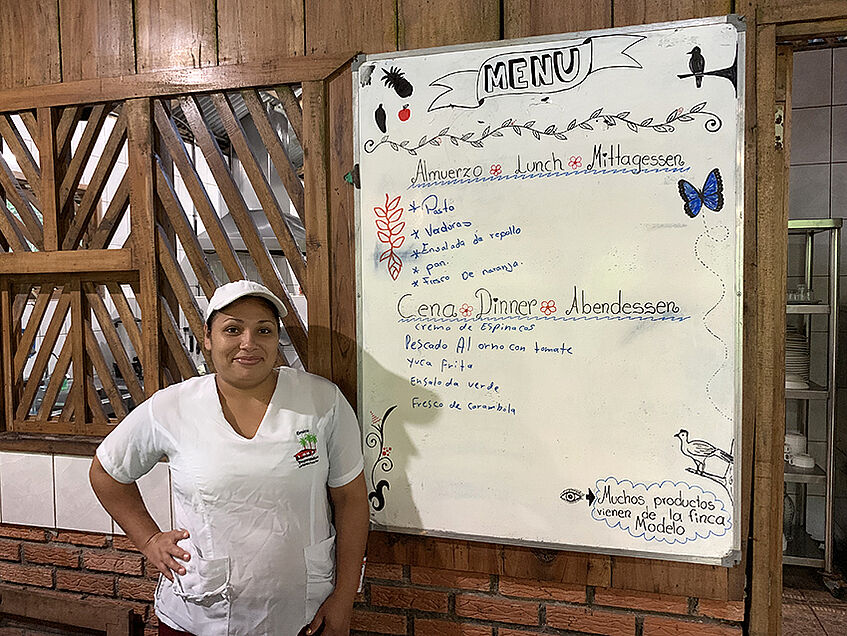 MENU
Almuerzo Lunch Mittagessen
* Pasta
* Verduras
* Ensalada de repollo
* pan.
* Fresco De naranja.
Cena Dinner Abendessen
cremo de Espinacas
Pescado Al orno con tomate
Yuca frita
Ensalada verde
Fresco de carambola
Muchos productos
vienen de la finca
Modelo